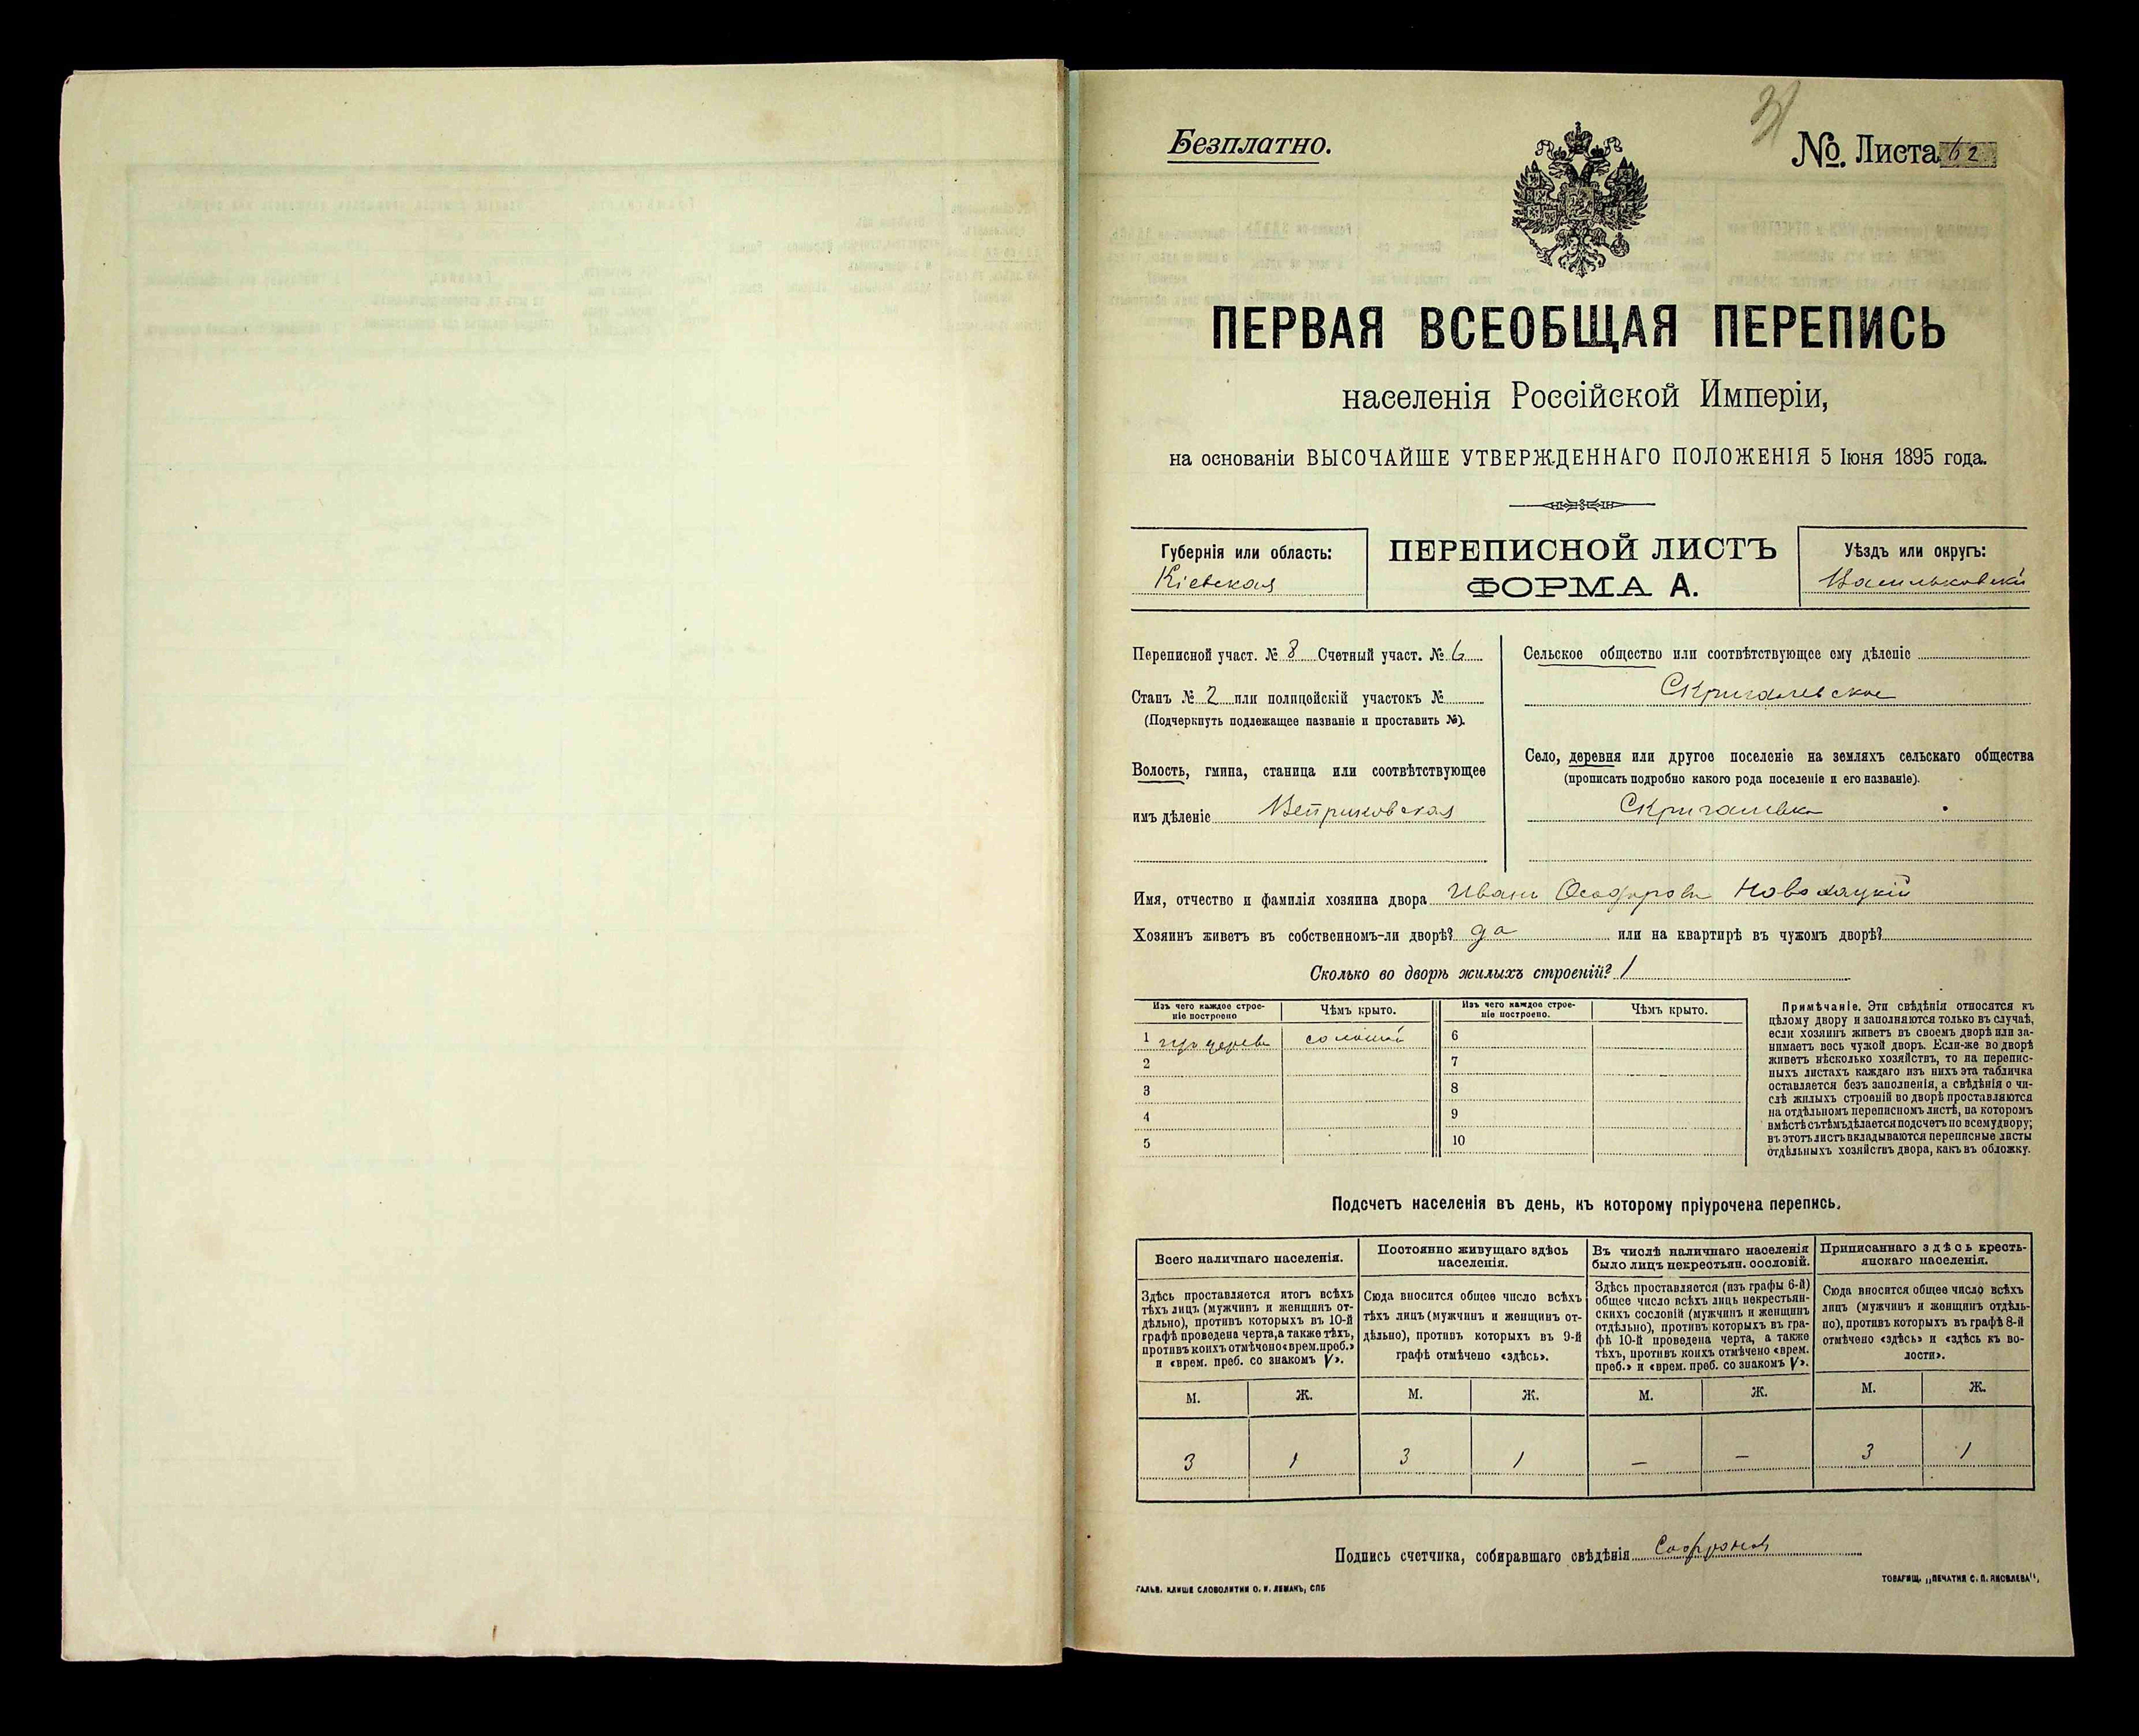 Безплатно.
№. Листа 62
ПЕРВАЯ ВСЕОБЩАЯ ПЕРЕПИСЬ
населенія Россійской Имперіи,
на основаніи ВЫСОЧАЙШЕ УТВЕРЖДЕННАГО ПОЛОЖЕНІЯ 5 Іюня 1895 года.
Губернія или область:
Кіевская
ПЕРЕПИСНОЙ ЛИСТЪ
ФОРМА А.
Уѣздъ или округъ:
Васильковскій
Переписной участ. № 8 Счетный участ. № 6
Станъ № 2 или полицейскій участокъ №
(Подчеркнуть подлежащее названіе и проставить №).
Волость, гмина, станица или соотвѣтствующее
имъ дѣленіе Веприковская
Сельское общество или соотвѣтствующее ему дѣленіе
Скригалевское
Село, деревня или другое поселеніе на земляхъ сельскаго общества
(прописать подробно какого рода поселеніе и его названіе).
Скригалевка
Имя, отчество и фамилія хозяина двора Иванъ Ѳеодоровъ
Хозяинъ живетъ въ собственномъ-ли дворѣ? да или на квартирѣ въ чужомъ дворѣ?
Сколько во дворѣ жилыхъ строеній? 1
Изъ чего каждое строе-
ніе построено
Чѣмъ крыто.
Изъ чего каждое строе-
ніе построено.
Чѣмъ крыто.
1 соломой 6
2 7
3 8
4 9
5 10
Примѣчаніе. Эти свѣдѣнія относятся къ
цѣлому двору и заполняются только въ случаѣ,
если хозяинъ живетъ въ своемъ дворѣ или за-
нимаетъ весь чужой дворъ. Если-же во дворѣ
живетъ нѣсколько хозяйствъ, то на перепис-
ныхъ листахъ каждаго изъ нихъ эта табличка
оставляется безъ заполненія, а свѣдѣнія о чи-
слѣ жилыхъ строеній во дворѣ проставляются
на отдѣльномъ переписномъ листѣ, на которомъ
вмѣстѣ съ тѣмъ дѣлается подсчетъ по всему двору;
въ этотъ листъ вкладываются переписные листы
отдѣльныхъ хозяйствъ двора, какъ въ обложку.
Подсчетъ населенія въ день, къ которому пріурочена перепись.
Всего наличнаго населенія.
Постоянно живущаго здѣсь
населенія.
Въ числѣ наличнаго населенія
было лицъ некрестьян. сословій.
Приписаннаго здѣсь кресть-
янскаго населенія.
Здѣсь проставляется итогъ всѣхъ
тѣхъ лицъ (мужчинъ и женщинъ от-
дѣльно), противъ которыхъ въ 10-й
графѣ проведена черта, а также тѣхъ,
противъ коихъ отмѣчено «врем. преб.»
и «врем. преб. со знакомъ V».
Сюда вносится общее число всѣхъ
тѣхъ лицъ (мужчинъ и женщинъ от-
дѣльно), противъ которыхъ въ 9-й
графѣ отмѣчено «здѣсь».
Здѣсь проставляется (изъ графы 6-й)
общее число всѣхъ лицъ некрестьян-
скихъ сословій (мужчинъ и женщинъ
отдѣльно), противъ которыхъ въ гра-
фѣ 10-й проведена черта, а также
тѣхъ, противъ коихъ отмѣчено «врем.
преб.» и «врем. преб. со знакомъ V».
Сюда вносится общее число всѣхъ
лицъ (мужчинъ и женщинъ отдѣль-
но), противъ которыхъ въ графѣ 8-й
отмѣчено «здѣсь» и «здѣсь въ во-
лости».
М. Ж. М. Ж. М. Ж. М. Ж.
3 1 3 1 — — 3 1
Подпись счетчика, собиравшаго свѣдѣнія
ГАЛЬВ. КЛИШЕ СЛОВОЛИТНИ О. И. ЛЕМАНЪ, СПБ
ТОВАРИЩ. „ПЕЧАТНЯ С. П. ЯКОВЛЕВА“,